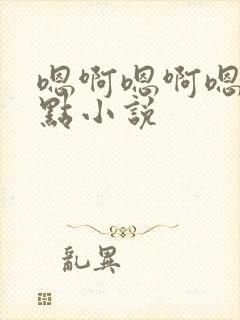 嗯啊嗯啊嗯
點小說
亂異